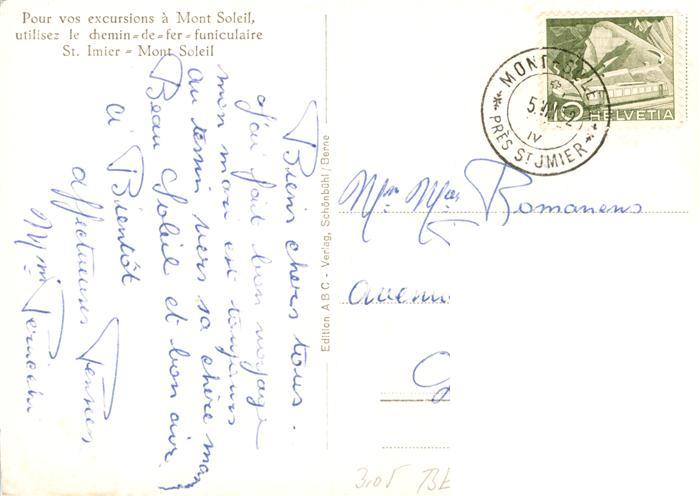 Pour vos excursions à Mont Soleil,
utilisez le chemin=de=fer=funiculaire
St. Imier = Mont Soleil
Biens chers tous.
j'ai fait bon voyage
mon mari est toujours
au tessin vers sa chère man
Beau Soleil et bon air.
à Bientôt
affectueuses
Mme
Edition ABC - Verlag, Schönbühl/Berne
MONT-SOLEIL
5.
52
IV
PRÈS ST JMIER
10 HELVETIA
Mr. Romanens
Avenu
G
3,05 BE